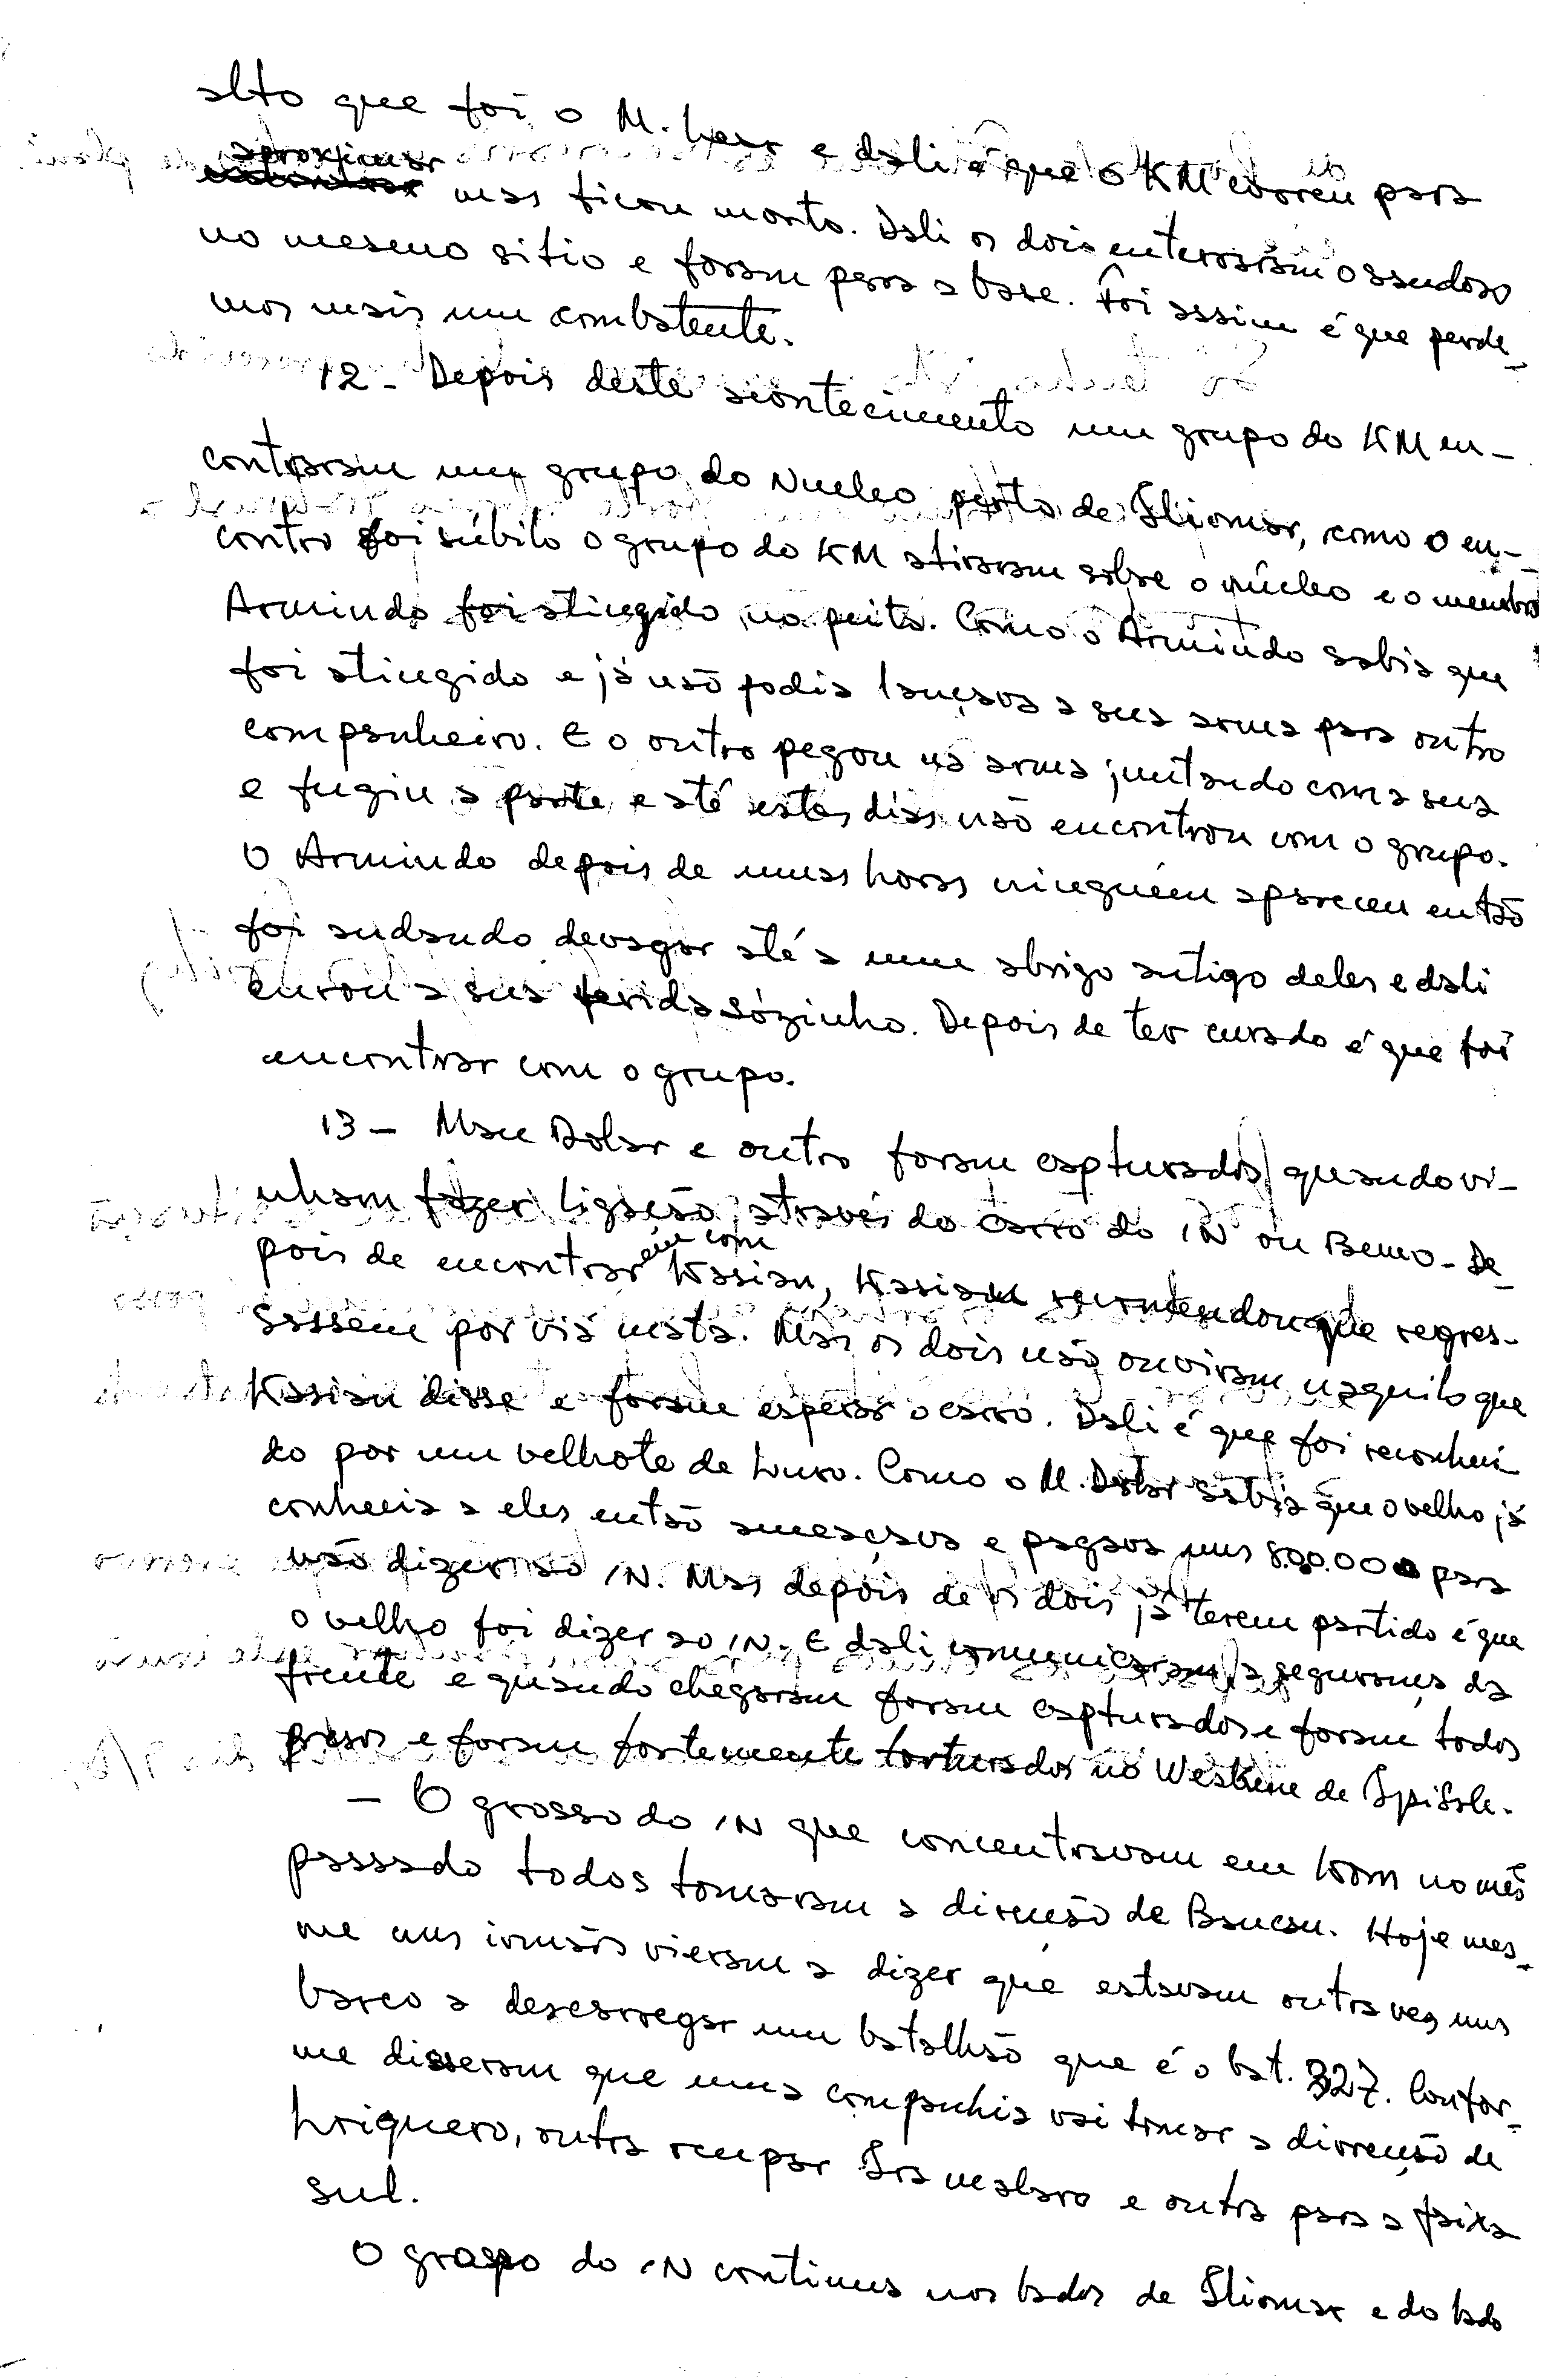 alto que foi o M. Lear e dali é que o KM correu para
aproximar mas ficou morto. Dali os dois enteraram o saudoso
no mesmo sitio e foram para a base. Foi assim é que perde-
mos mais um combatente.
12 - Depois deste acontecimento um grupo do KM en-
contraram um grupo do Nucleo perto de Iliomar, como o en-
contro foi súbito o grupo do KM atiraram sobre o núcleo e o membro
Armindo foi atingido no peito. Como o Armindo sabia que
foi atingido e já não podia lançava a sua arma para outro
companheiro. E o outro pegou na arma juntando com a sua
e fugiu a parte e até estes dias não encontrou com o grupo.
O Armindo depois de umas horas ninguém apareceu então
foi andando devagar até a um abrigo antigo deles e dali
curou a sua ferida sózinho. Depois de ter curado é que foi
encontrar com o grupo.
13 - Mau Dolar e outro foram capturados quando vi-
nham fazer ligação através do carro do IN ou Bemo. De-
pois de encontrarem com Kasian, Kasian recomendou que regres-
sassem por via mata. Mas os dois não ouviram naquilo que
Kasian disse e foram esperar o carro. Dali é que foi reconheci
do por um velhote de Luro. Como o M. Dolar sabia que o velho já
conhecia a eles então ameaçava e pagava uns 800.000 para
não dizer ao IN. Mas depois de os dois já terem partido é que
o velho foi dizer ao IN. E dali comunicaram a segurança da
frente e quando chegaram foram capturados e foram todos
presos e foram fortemente torturados no de
- O grosso do IN que concentravam em no mês
passado todos tomaram a direcção de Baucau. Hoje mes-
me uns irmãos vieram a dizer que estavam outra vez uns
barco a descarregar um batalhão que é o bat. 327. Confor-
me disseram que uma companhia vai tomar a dirrecção de
outra ocupar e outra para a faixa
sul.
O graspo do IN continua nos lados de Iliomar e do lado